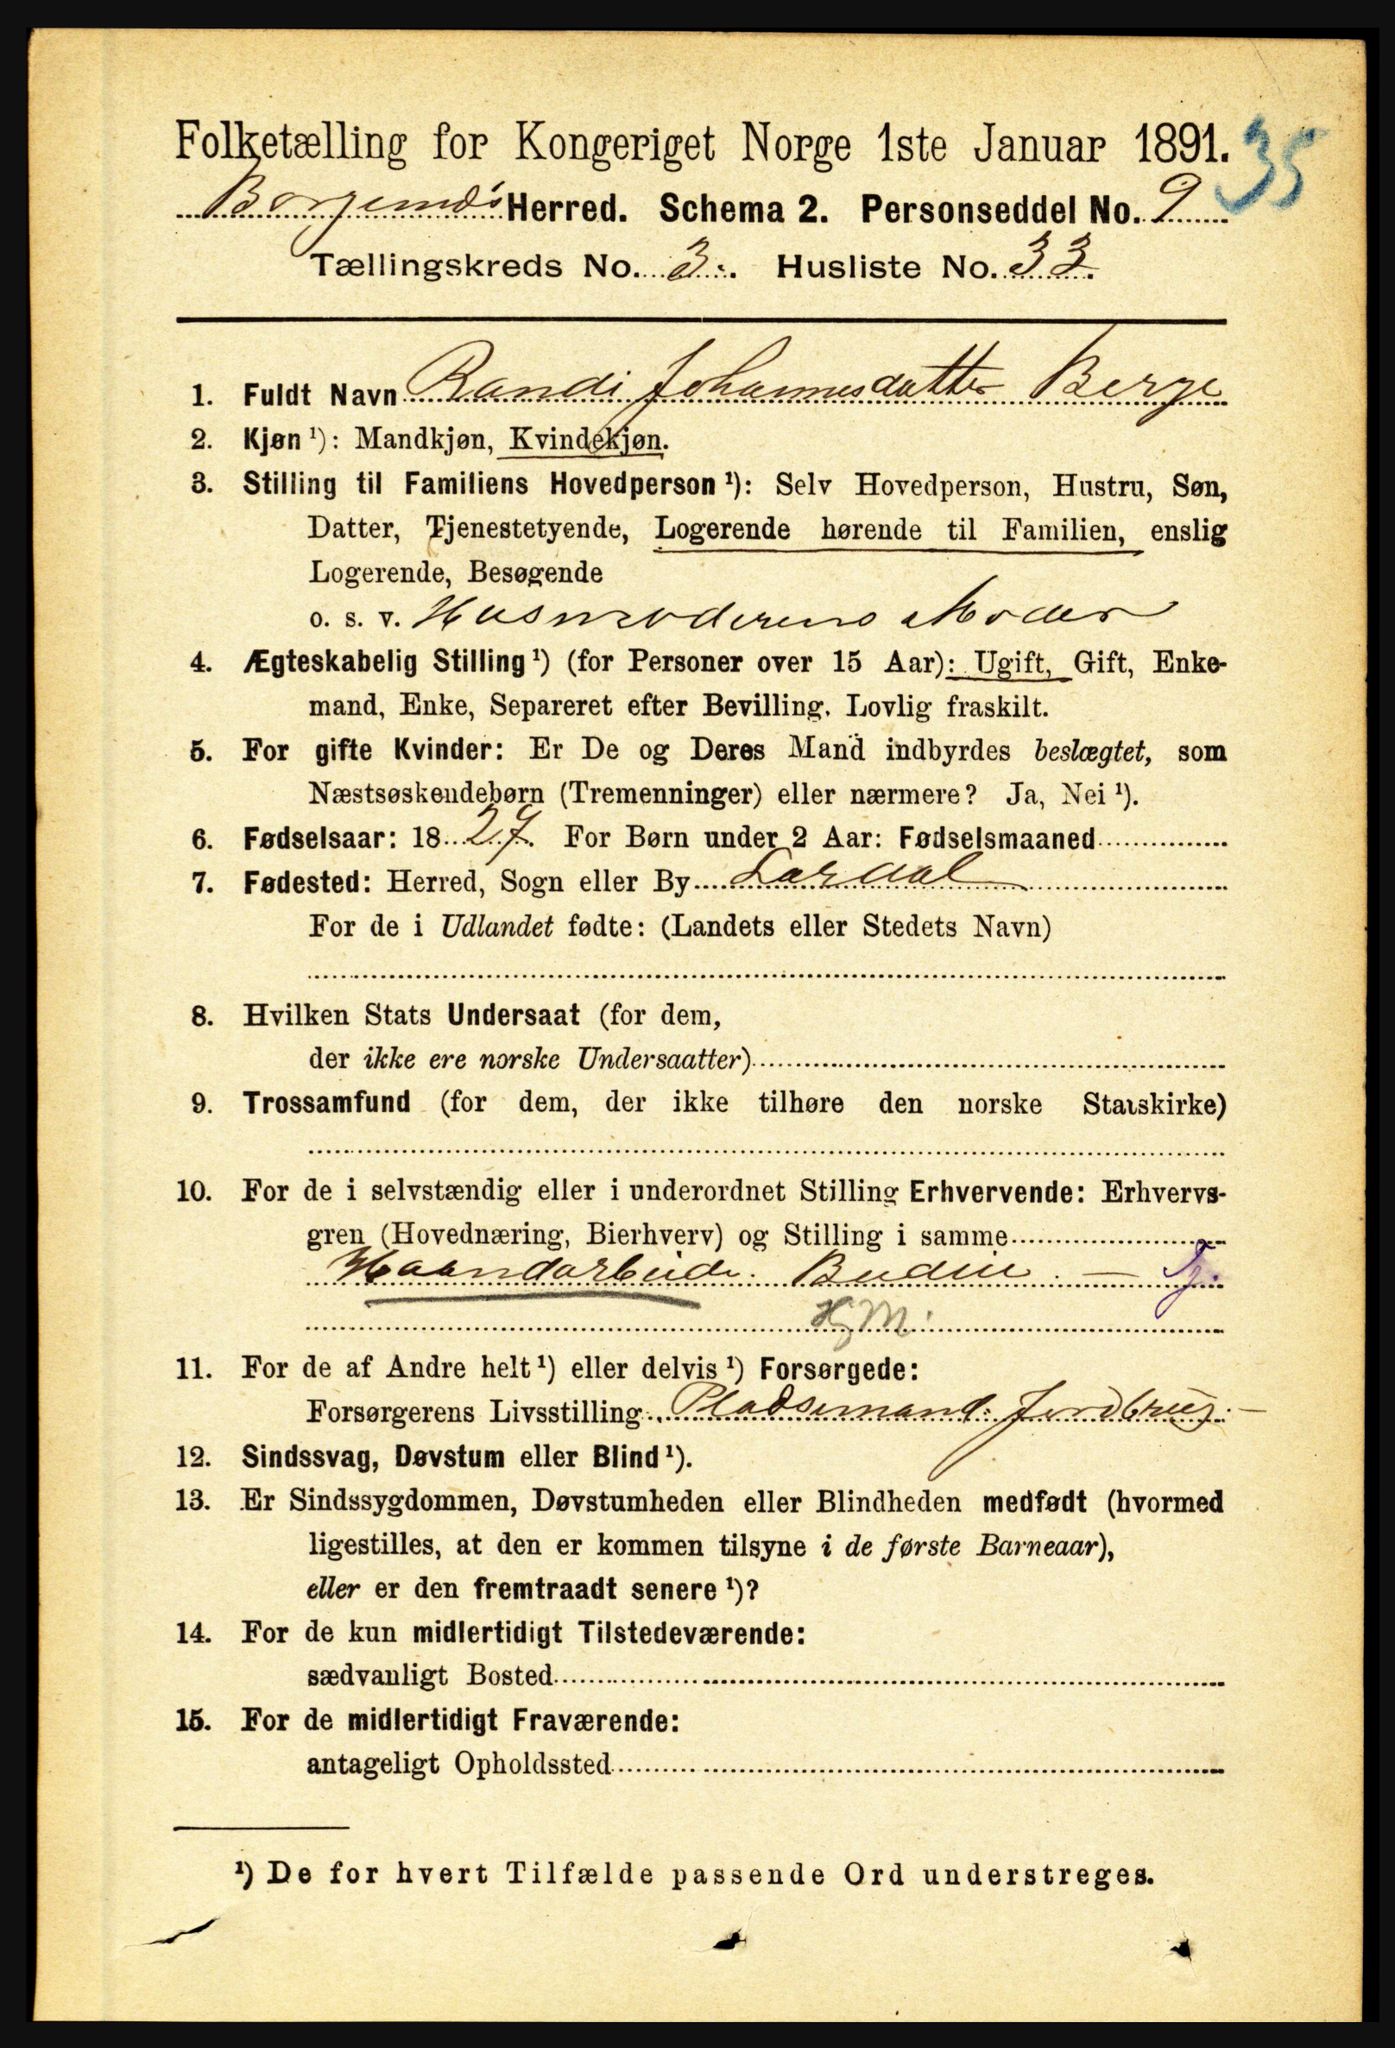 Folketælling for Kongeriget Norge 1ste Januar 1891. 35
Borgunds Herred. Schema 2. Personseddel No. 9
Tællingskreds No. 3. Husliste No. 33.
1. Fuldt Navn Randi Johannesdatter Berge
2. Kjøn ¹): Mandkjøn, Kvindekjøn.
3. Stilling til Familiens Hovedperson ¹): Selv Hovedperson, Hustru, Søn,
Datter, Tjenestetyende, Logerende hørende til Familien, enslig
Logerende, Besøgende
o. s. v. Husmoderens Moder
4. Ægteskabelig Stilling ¹) (for Personer over 15 Aar): Ugift, Gift, Enke-
mand, Enke, Separeret efter Bevilling. Lovlig fraskilt.
5. For gifte Kvinder: Er De og Deres Mand indbyrdes beslægtet, som
Næstsøskendebørn (Tremenninger) eller nærmere? Ja, Nei ¹).
6. Fødselsaar: 18 27. For Børn under 2 Aar: Fødselsmaaned
7. Fødested: Herred, Sogn eller By Lærdal
For de i Udlandet fødte: (Landets eller Stedets Navn)
8. Hvilken Stats Undersaat (for dem,
der ikke ere norske Undersaatter)
9. Trossamfund (for dem, der ikke tilhøre den norske Statskirke)
10. For de i selvstændig eller i underordnet Stilling Erhvervende: Erhvervs-
gren (Hovednæring, Bierhverv) og Stilling i samme
Haandarbeide. Budeie. — Tj.
11. For de af Andre helt ¹) eller delvis ¹) Forsørgede:
Forsørgerens Livsstilling Pladsemand. Jordbrug. —
12. Sindssvag, Døvstum eller Blind ¹).
13. Er Sindssygdommen, Døvstumheden eller Blindheden medfødt (hvormed
ligestilles, at den er kommen tilsyne i de første Barneaar),
eller er den fremtraadt senere ¹)?
14. For de kun midlertidigt Tilstedeværende:
sædvanligt Bosted
15. For de midlertidigt Fraværende:
antageligt Opholdssted
¹) De for hvert Tilfælde passende Ord understreges.